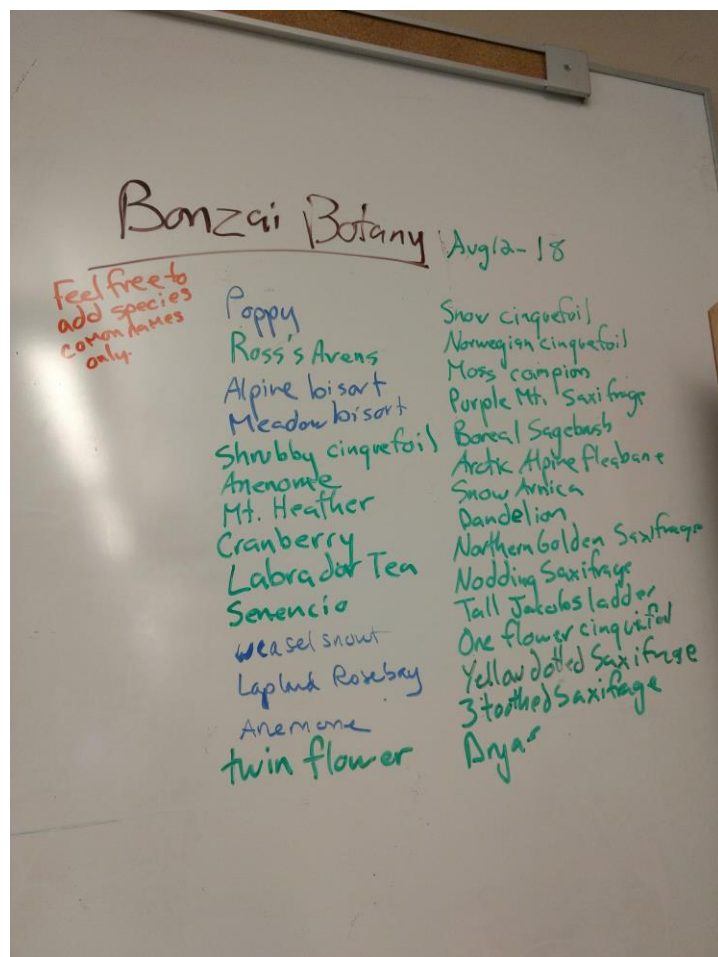 Bonzai Botany
Aug 12-18
Feel free to
add species
comon names
only.
Poppy
Ross's Avens
Alpine bisort
Meadow bisort
Shrubby cinquefoil
Anenome
Mt. Heather
Cranberry
Labrador Tea
Senencio
weasel snout
Lapland Rosebay
Anemone
twin flower
Snow cinquefoil
Norwegian cinquefoil
Moss campion
Purple Mt. Saxifrage
Boreal Sagebush
Arctic Alpine fleabane
Snow Arnica
Dandelion
Northern Golden Saxifrage
Nodding Saxifrage
Tall Jakobs ladder
One flower cinquefoil
Yellow dotted Saxifrage
3 toothed Saxifrage